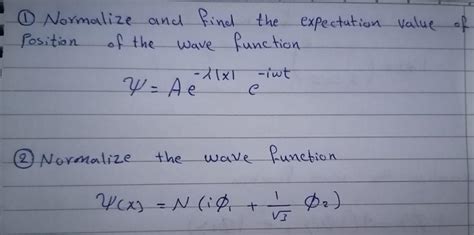 ① Normalize and find the expectation value of
Position of the wave function
Ψ = A e^{-λ|x|} e^{-iωt}
② Normalize the wave function
Ψ(x) = N (i Ø₁ + 1/√3 Ø₂)